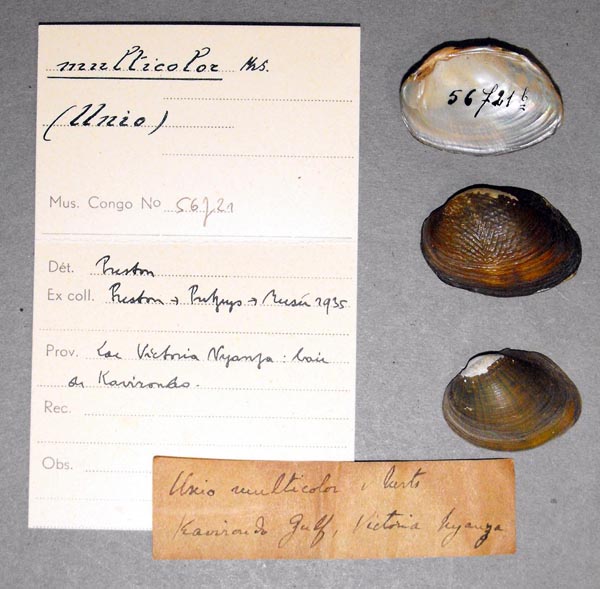 multicolor Mts.
(Unio)
Mus. Congo No 56f21
Dét. Preston
Ex coll. Preston → Putzeys → Musée 1935
Prov. Lac Victoria Nyanza: baie
de Kavirondo.
Rec.
Obs.
Unio multicolor, Marts
Kavirondo Gulf, Victoria Nyanza
56f21